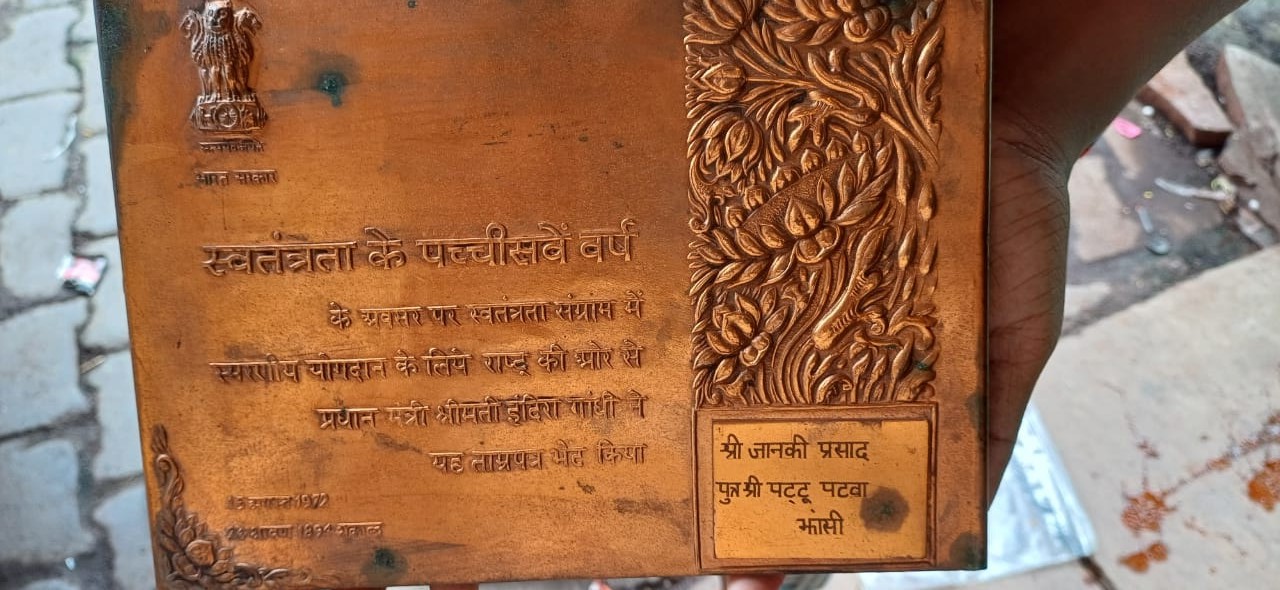 सत्यमेव जयते
भारत सरकार
स्वतंत्रता के पच्चीसवें वर्ष
के अवसर पर स्वतंत्रता संग्राम में
स्मरणीय योगदान के लिये राष्ट्र की ओर से
प्रधान मंत्री श्रीमती इंदिरा गांधी ने
यह ताम्रपत्र भेंट किया
15 अगस्त 1972
24 श्रावण 1894 शकाब्द
श्री जानकी प्रसाद
पुत्र श्री पट्टू पटवा
झांसी